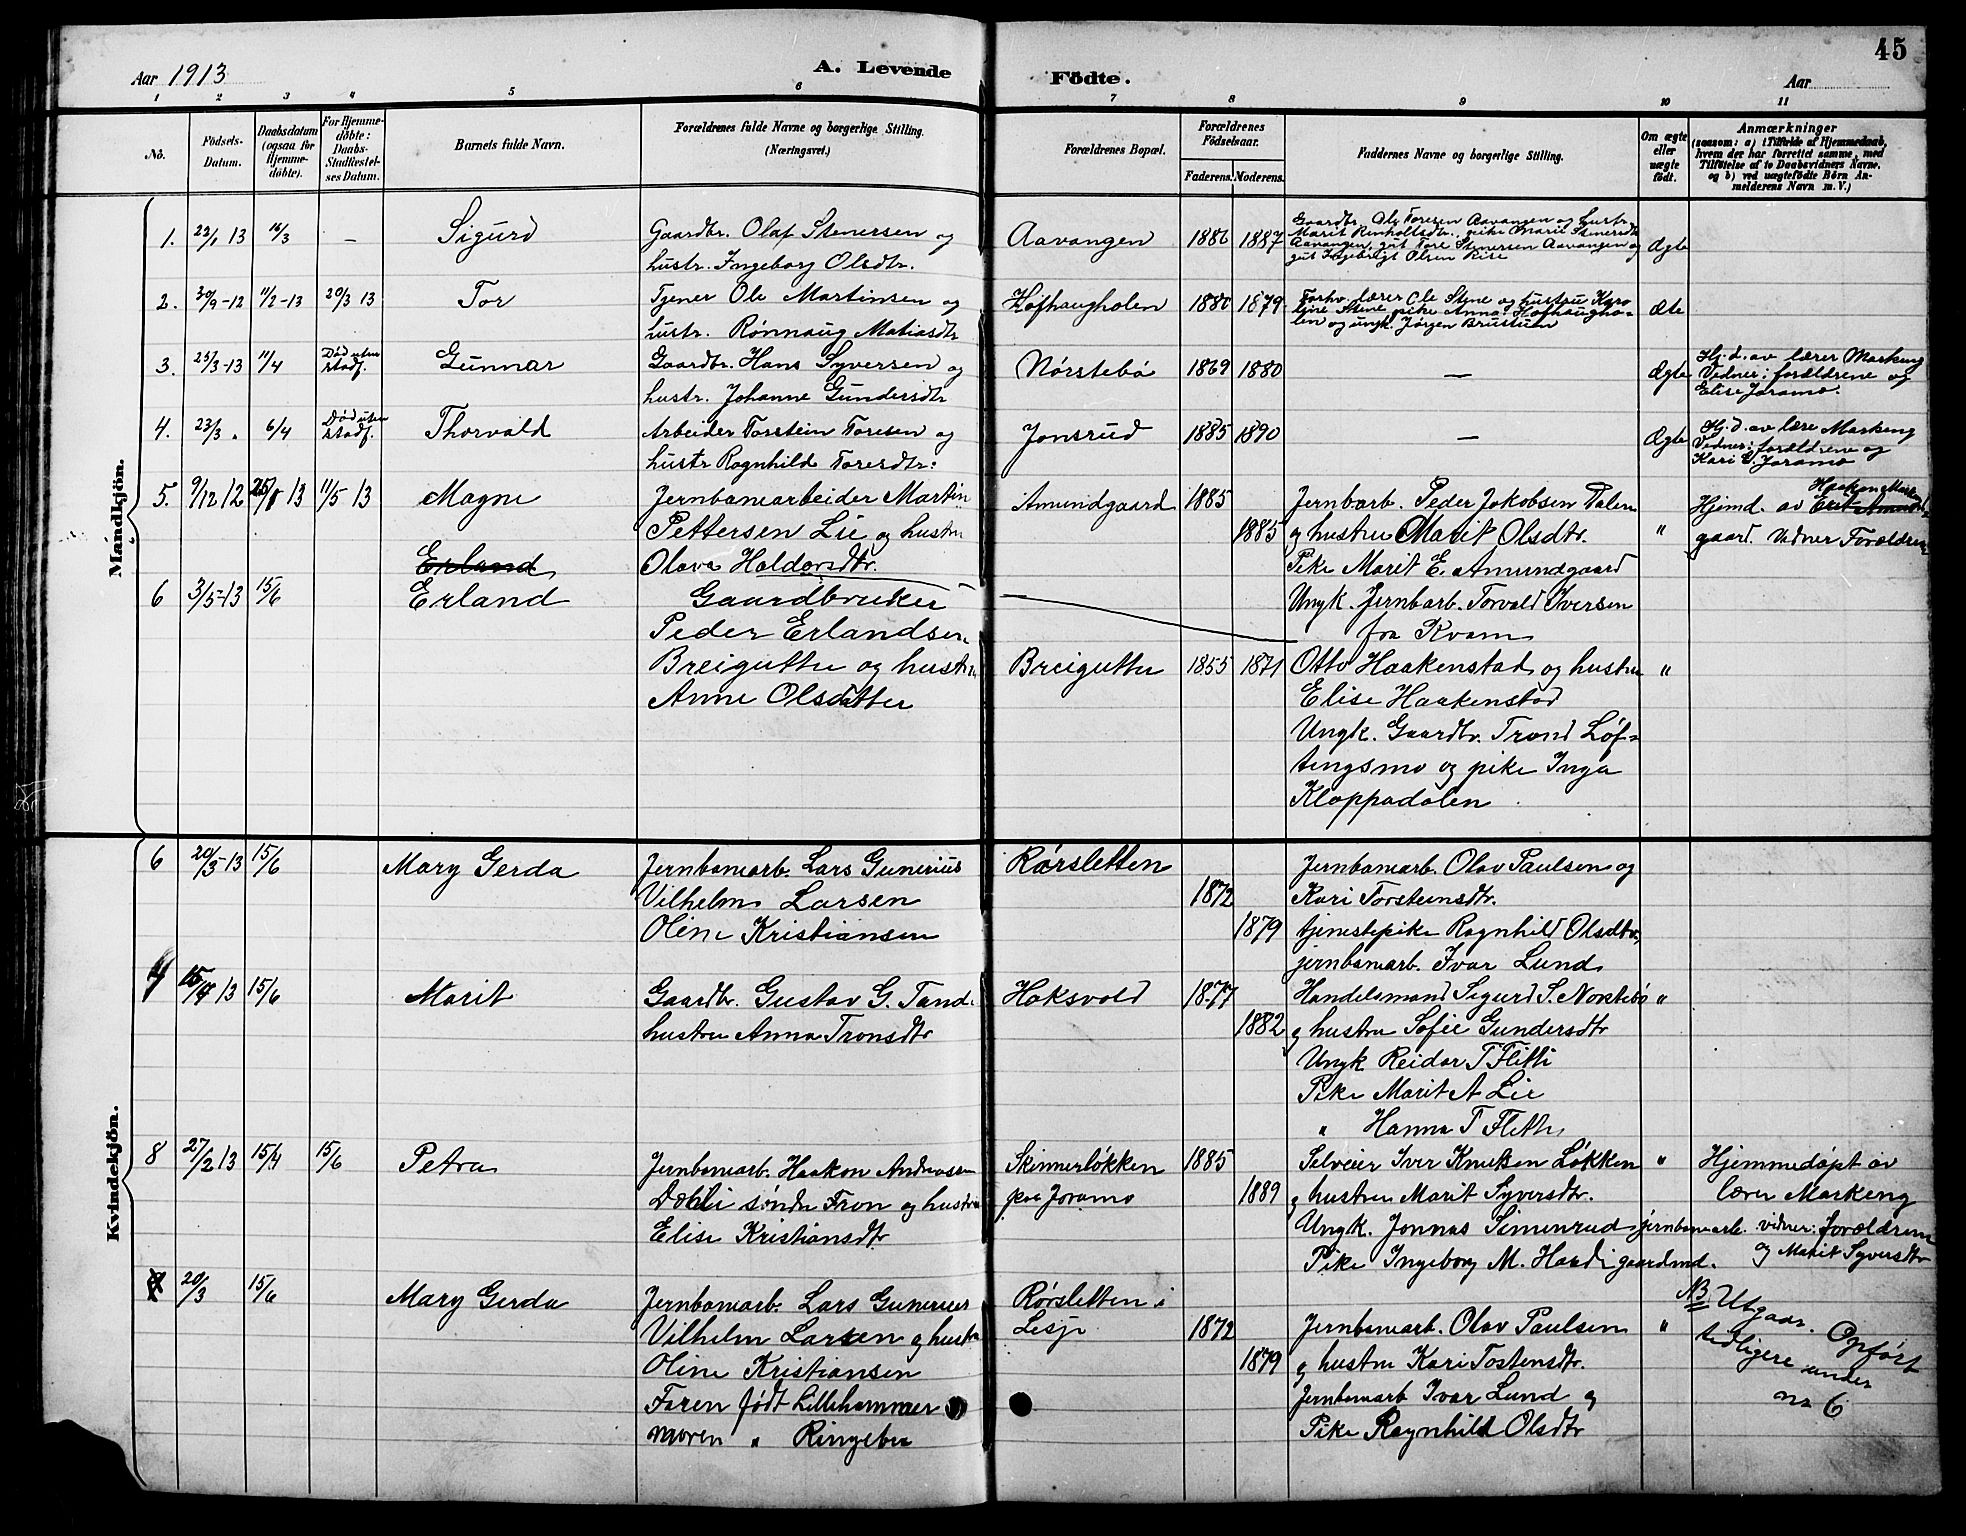 45
Aar 1913
A. Levende Födte.
Aar
1 2 3 4 5 6 7 8 9 10 11
No.
Födsels-Datum.
Daabsdatum (ogsaa for Hjemme-döbte).
For Hjemme-döbte: Daabs-Stadfæstel-ses Datum.
Barnets fulde Navn.
Forældrenes fulde Navne og borgerlige Stilling.
(Næringsvei.)
Forældrenes Bopæl.
Forældrenes Födselsaar.
Faderens. Moderens.
Faddernes Navne og borgerlige Stilling.
Om ægte eller uægte födt.
Anmærkninger
(saasom: a) i Tilfælde af Hjemmedaab,
hvem der har forrettet samme, med
Tilföielse af to Daabsvidners Navne,
og b) ved uægtefödte Börn An-
melderens Navn m. V.)
Mandkjön.
1. 22/1 13 16/3 — Sigurd
Gaardbr. Olaf Stenersen og
hustr. Ingeborg Olsdtr.
Aavangen 1886 1887
Gaardbr. Ole Toresen Aavangen og hustr.
Marit Reinholtsdtr., pike Marit Stenersdtr
Aavangen, gut Tore Stenersen Aavangen og
gut Ingebrigt Olsen Rise
Ægte
2. 30/9-12 11/2-13 20/3 13 Tor
Tjener Ole Martinsen og
hustr. Rønnaug Matiasdtr
Hofhaugholen 1880 1879
Forhv. lærer Ole Stene og hustru Karo
line Stene, pike Anna Hofhaugho-
len og ungk. Jørgen Brustuen
Æte
3. 25/3-13 11/4 Død uten stadf. Gunnar
Gaardbr. Hans Syversen og
hustr. Johanne Gundersdtr
Nørstebø 1869 1880 —
Ægte
Hj. d. av lærer Markeng
Vidner: forældrene og
Elise Joramo.
4. 23/3 " 6/4 Død uten stadf. Thorvald
Arbeider Torstein Toresen og
hustr Ragnhild Toresdtr:
Jonsrud 1885 1890 —
Ægte
Hj. d. av lære Markeng
Vidner: forældrene og
Kari G. Joramo
5. 9/12 12 13 11/5 13 Magne
Jernbanearbeider Martin
Pettersen Lie og hustru
Olava Haldorsdtr.
Amundgaard 1885
1885
Jernbarb. Peder Jakobsen Dalen
og hustru Marit Olsdtr.
Pike Marit E. Amundgaard
Ungk. Jernbarb. Torvald Iversen
fra Kvam
"
Hjemd. av
gaard. Vidner Forældrene
Erland
6 3/5-13 15/6 Erland
Gaardbruker
Peder Erlandsen
Breigutte og hustru
Anne Olsdatter
Breigutte 1855 1871
Otto Haakenstad og hustru "
Elise Haakenstad
Ungk. Gaardbr. Trond Løf-
tingsmo og pike Inga
Kloppadalen
Kvindekjön.
6 20/3-13 15/6 Mary Gerda
Jernbanearb. Lars Gunerius
Vilhelm Larsen
Oline Kristiansen
Rørsletten
1872
1879
Jernbanearb. Olav Paulsen og
Kari Torsteinsdtr.
tjenestepike Ragnhild Olsdtr,
jernbanearb. Ivar Lund
13 15/6 Marit
Gaardbr. Gustav G. Tand-
hustru Anna Tronsdtr
Haksvold 1877
1882
Handelsmand Sigurd S. Norstebø "
og hustru Sofie Gundersdtr
Ungk Reidar T Flitti
Pike Marit A Lie
" Hanna T Flitti
8 27/2 13 15/4 15/6 Petra
Jernbanearb. Haakon Andreasen
Dahli søndre Fron og hustru
Elise Kristiansdtr
Skinnerløkken
paa Joramo
1885
1889
Selveier Iver Knutsen Løkken "
og hustru Marit Syversdtr.
Ungk. Jonnas Simenrud jernbanearb.
Pike Ingeborg M. gaardmd.
Hjemmedøpt av
lærer Markeng
vidner: forældrene
og Marit Syversdtr
20/3 15/6 Mary Gerda
Jernbanearb. Lars Gunerius
Vilhelm Larsen og hustru
Oline Kristiansen
Faren født Lillehammer
moren " Ringebu
Rørsletten i
Lesje
1872
1879
Jernbanearb. Olav Paulsen "
og hustru Kari Tostensdtr.
Jernbanearb Ivar Lund og
Pike Ragnhild Olsdtr
NB Utgaar. Opført
tidligere under
no 6